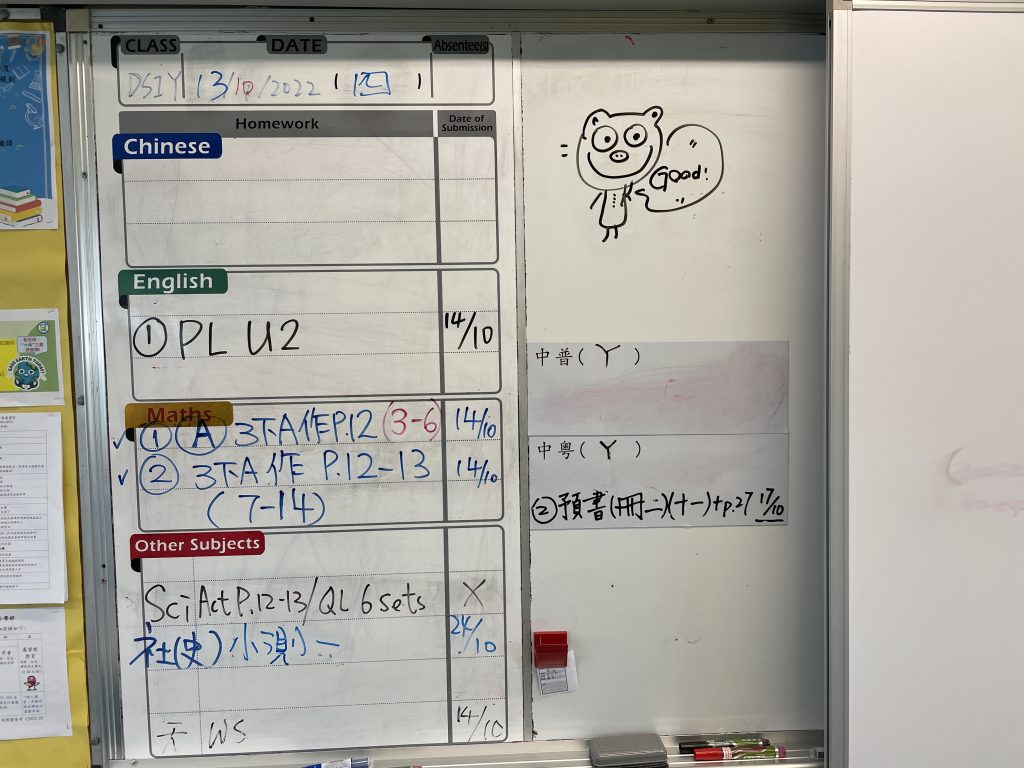 CLASS DATE Absentee(s)
DS1Y 13/10/2022 (四)
Homework
Date of Submission
Chinese
English
① PL U2 14/10
Maths
✓ ① Ⓐ 3下A作P.12 (3-6) 14/10
✓ ② 3下A作 P.12-13 14/10
(7-14)
Other Subjects
Sci Act P.12-13/QL 6 sets X
社(史)小測二 24/10
WS 14/10
Good!
中普( Y )
中粵( Y )
② 預書(冊二)(十一)+p.27 17/10
SAVE EARTH TODAY